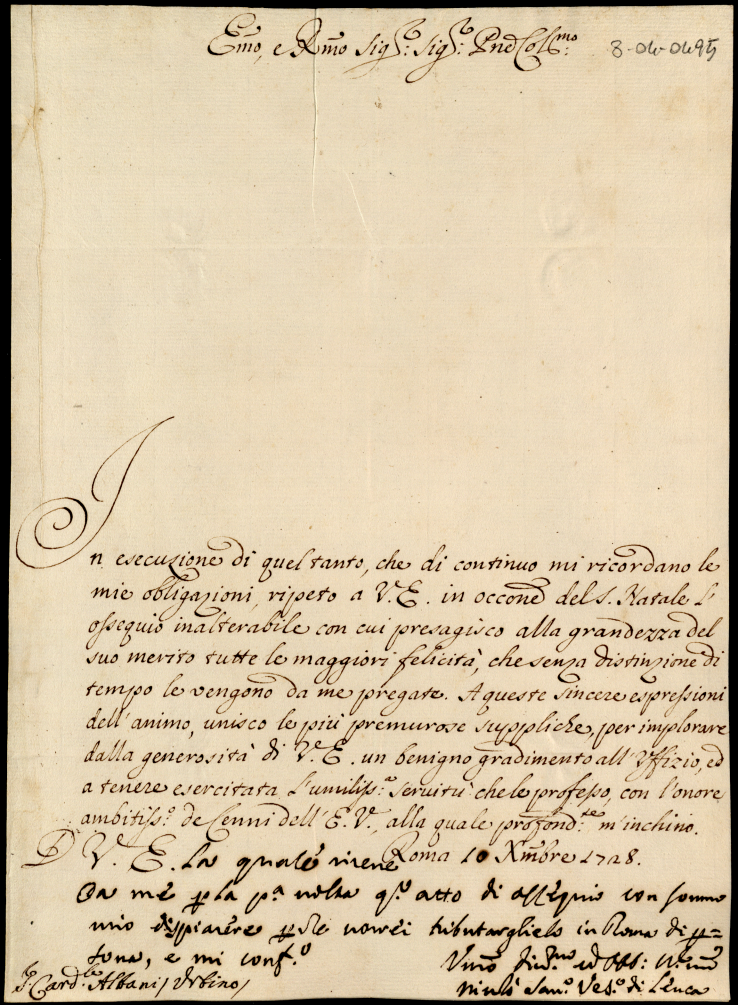 Emo, e Rmo Sigr: Sigr: Pne Colmo:
8-06-0495
In esecuzione di quel tanto, che di continuo mi ricordano le
mie obligazioni, ripeto a V.E. in occone del S. Natale l'
ossequio inalterabile con cui presagisco alla grandezza del
suo merito tutte le maggiori felicità, che senza distinzione di
tempo le vengono da me pregate. A queste sincere espressioni
dell'animo, unisco le più premurose suppliche, per implorare
dalla generosità di V.E. un benigno gradimento all'Uffizio, ed
a tenere esercitata l'umiliss:a servitù che le professo, con l'onore
ambitiss:o de Cenni dell'E.V., alla quale profond:te m'inchino.
D V. E. la quale viene Roma 10 Xmbre 1728.
Da me p la pa volta qto atto di ossequio con sommo
mio dispiacere p che vorrei tributarglielo in Roma di p=
sona, e mi conf:o
Vmo Div:mo ed Obb:
Sr Card:le Albani / Urbino /
Ves:o di Leuca